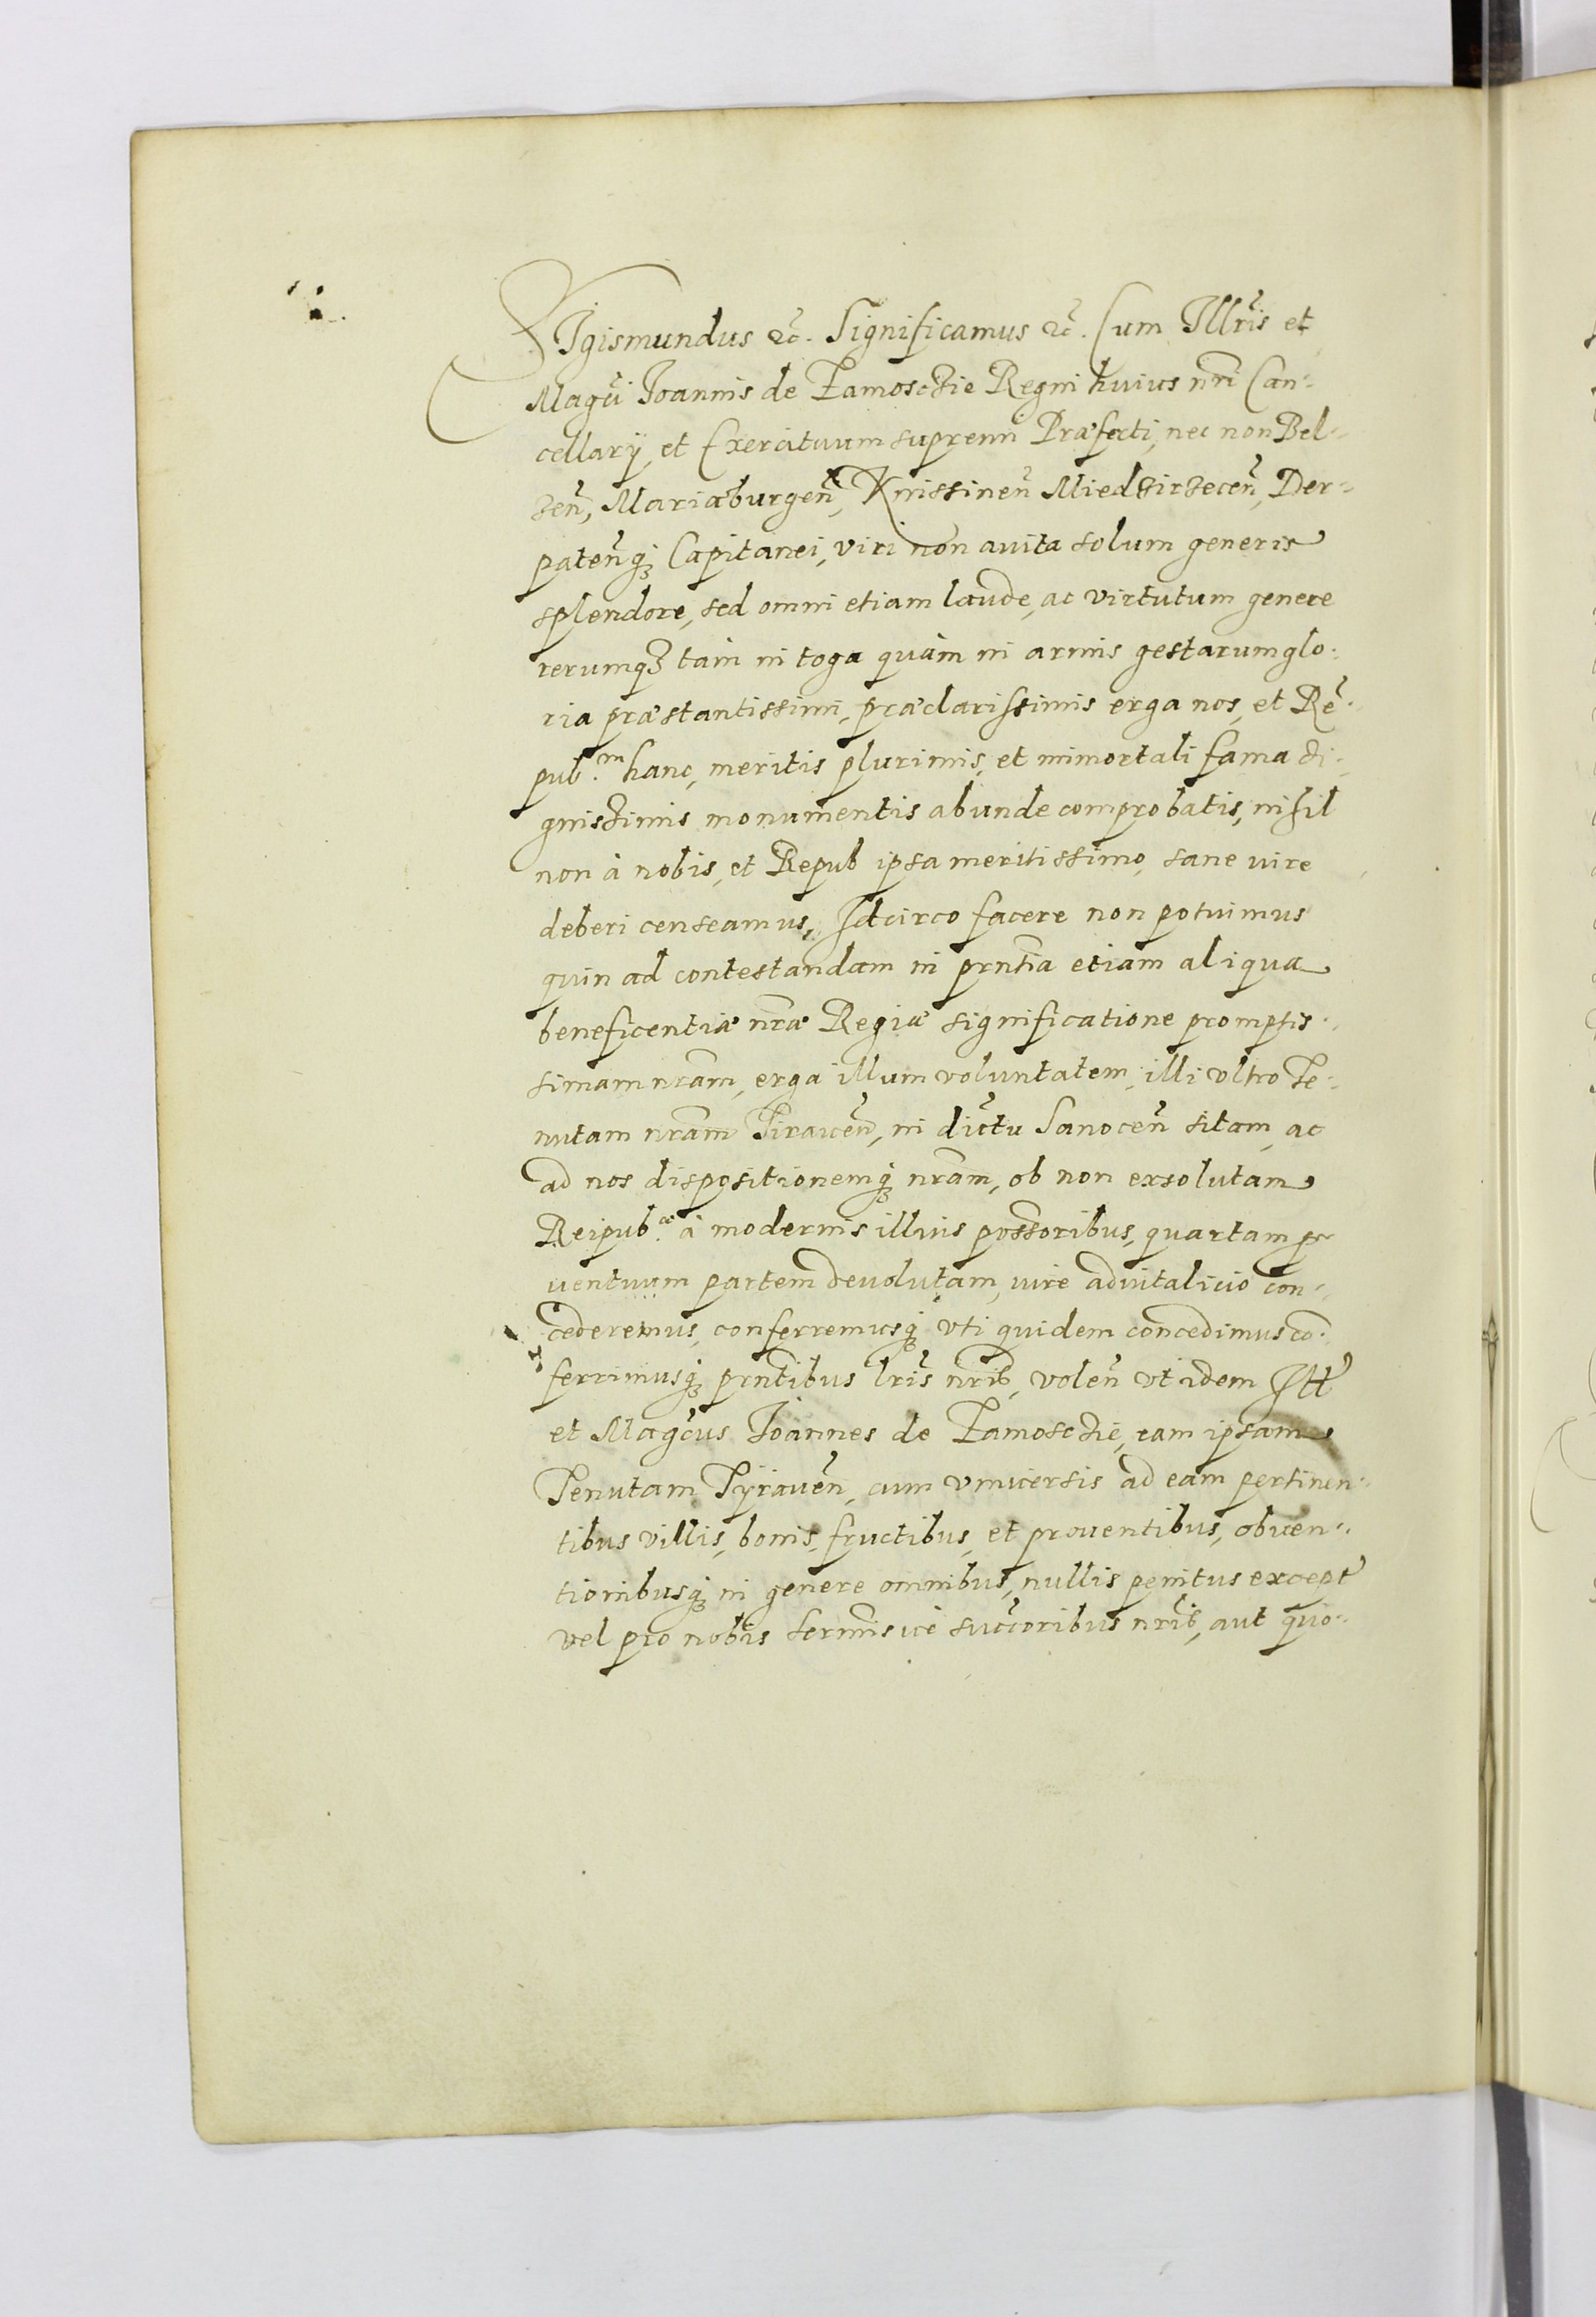 SIgismundus &c̃. Significamus &c̃. Cum Illr̃is et
Magc̃i Ioannis de Zamosczie Regni huius nr̃i Can-
cellarij, et Exercituum supremi Præfecti, nec non Bel-
zeñ, Mariæburgeñ, Knissineñ Miedzirzeceñ, Der-
pateñq₃ Capitanei, viri non auita solum generis
splendore, sed omni etiam laude, ac virtutum genere
rerumq₃ tam in toga quàm in armis gestarum glo-
ria præstantissimi, præclarissimis erga nos, et Rẽ-
pub.ᵐ hanc, meritis plurimis, et immortali fama di-
gnissimis monumentis abunde comprobatis, nihil
non à nobis, et Repub ipsa meritissimo, sane iure
deberi censeamus, Idcirco facere non potuimus
quin ad contestandam in prñtia etiam aliqua
beneficentiæ nræ Regiæ significatione promptis-
simam nram, erga illum voluntatem, illi vltro Te-
nutam nram Tiraueñ, in dic̃tu Sanoceñ sitam, ac
ad nos dispositionemq₃ nram, ob non exsolutam
Reipub.æ à modernis illius possoribus, quartam pro
uentuum partem deuolutam, iure aduitalicio con-
cederemus, conferremusq₃ vti quidem concedimus co-
ferrimusq₃ prñtibus lr̃is nris, voleñ vt idem Ill̃
et Magc̃us Ioannes de Zamosczie, eam ipsam
Tenutam Tÿraueñ, cum vniuersis ad eam pertinen-
tibus villis, bonis, fructibus, et prouentibus, obuen-
tionibusq₃ in genere omnibus, nullis penitus except̃
vel pro nobis sermsue succoribus nris, aut quo-